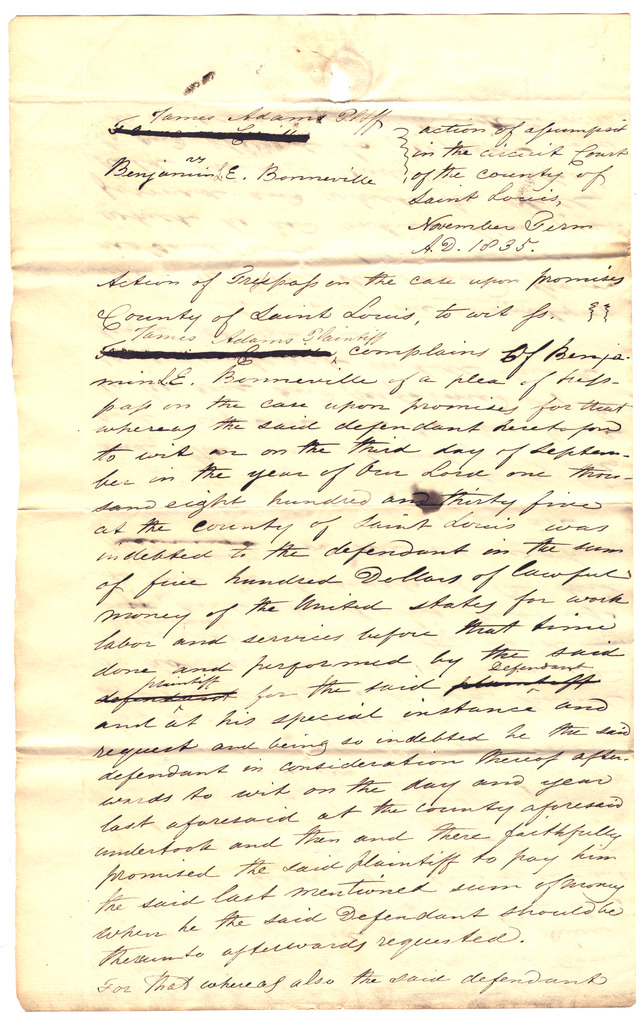 James Adams Pltff
vs
Benjamin L E. Bonneville
action of assumpsit
in the circuit Court
of the county of
Saint Louis,
November Term
A.D. 1835.
Action of Trespass on the case upon promises
County of Saint Louis, to wit ss.
James Adams Plaintiff
complains Of Benja-
min L E. Bonneville of a plea of tress-
pass on the case upon promises for that
whereas the said defendant heretofore
to wit on on the third day of Septem-
ber in the year of Our Lord one thou-
sand eight hundred and thirty five
at the county of Saint Louis was
indebted to the defendant in the sum
of five hundred Dollars of lawful
money of the United states for work
labor and services before that time
done and performed by the said
plaintiff Defendant
defendant for the said plaintiff
and at his special instance and
request and being so indebted he the said
defendant in consideration thereof after-
wards to wit on the day and year
last aforesaid at the county aforesaid
undertook and then and there faithfully
promised the said plaintiff to pay him
the said last mentioned sum of money
when he the said Defendant should be
thereunto afterwards requested.
For that whereas also the said defendant